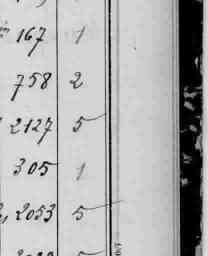 167 1
758 2
2127 5
305 1
2053 5